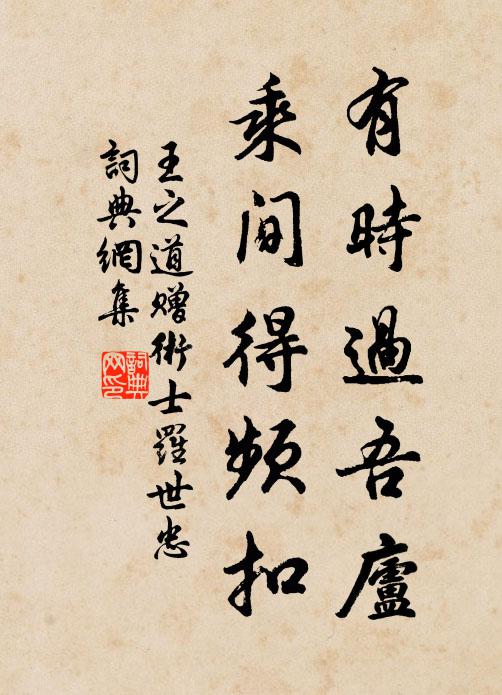 有時過吾廬
乘間得頻扣
王之道贈術士羅世忠
詞典網集
詞典
网印